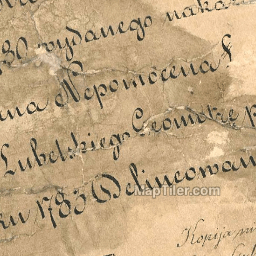 30 wydanego naka
na Nepomucena
Lubelskiego Geometrę
ku 1783 Delineowan
Kopija
MapTiler.com